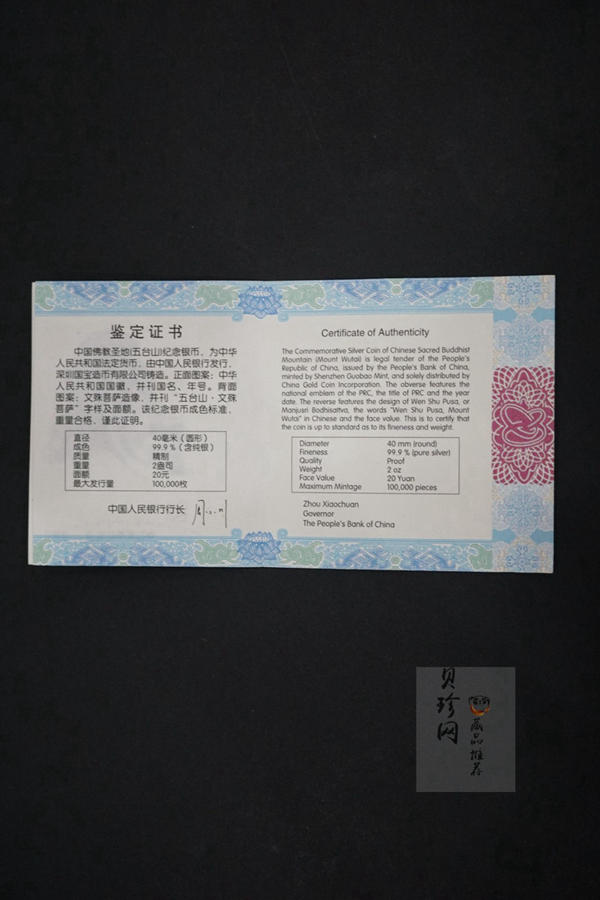 鉴定证书
中国佛教圣地(五台山)纪念银币，为中华
人民共和国法定货币，由中国人民银行发行，
深圳国宝造币有限公司铸造。正面图案：中华
人民共和国国徽，并刊国名、年号。背面
图案：文殊菩萨造像，并刊“五台山·文殊
菩萨”字样及面额。该纪念银币成色标准，
重量合格，谨此证明。
直径 40毫米（圆形）
成色 99.9％（含纯银）
质量 精制
重量 2盎司
面额 20元
最大发行量 100,000枚
中国人民银行行长
Certificate of Authenticity
The Commemorative Silver Coin of Chinese Sacred Buddhist
Mountain (Mount Wutai) is legal tender of the People's
Republic of China, issued by the People's Bank of China,
minted by Shenzhen Guobao Mint, and solely distributed by
China Gold Coin Incorporation. The obverse features the
national emblem of the PRC, the title of PRC and the year
date. The reverse features the design of Wen Shu Pusa, or
Manjusri Bodhisattva, the words "Wen Shu Pusa, Mount
Wutai" in Chinese and the face value. This is to certify that
the coin is up to standard as to its fineness and weight.
Diameter 40 mm (round)
Fineness 99.9 % (pure silver)
Quality Proof
Weight 2 oz
Face Value 20 Yuan
Maximum Mintage 100,000 pieces
Zhou Xiaochuan
Governor
The People's Bank of China
贝珍网
藏品推荐